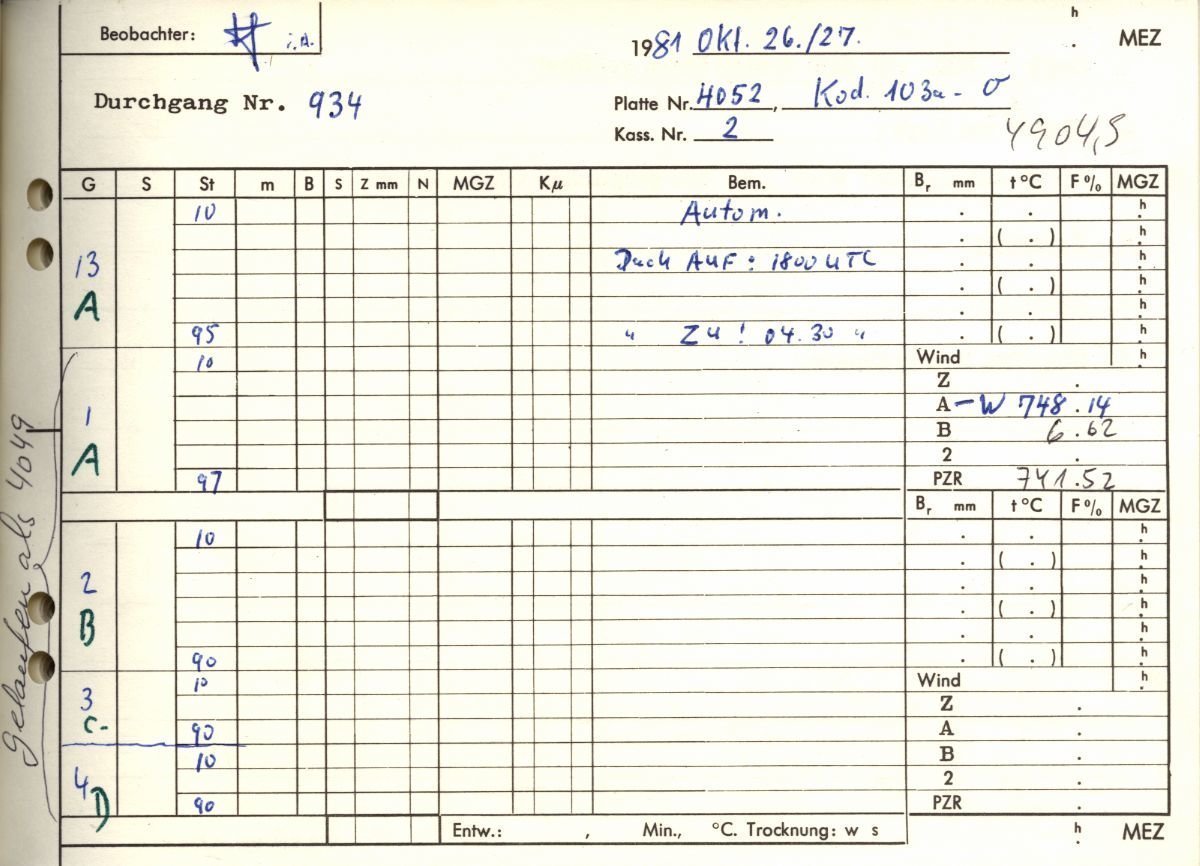 Beobachter: i.A.
1981 Okt. 26./27. h . MEZ
Durchgang Nr. 934
Platte Nr. 4052, Kod. 103a-O
Kass. Nr. 2
4904,5
G S St m B S Z mm N MGZ Kµ Bem. Br mm t°C F% MGZ
10 Autom. . . h
. ( . ) h
13 Dach AUF: 1800 UTC . . h
A . ( . ) h
. . h
95 " ZU: 04.30 " . ( . ) h
10 Wind h
Z .
1 A - W 748.14
B 6.62
A 2 .
97 PZR 741.52
Br mm t°C F% MGZ
10 . . h
. ( . ) h
2 . . h
B . ( . ) h
. . h
90 . ( . ) h
10 Wind h
3 Z .
C- 90 A .
10 B .
4 2 .
D 90 PZR .
Entw.: , Min., °C. Trocknung: w s h . MEZ
gelaufen als 4049